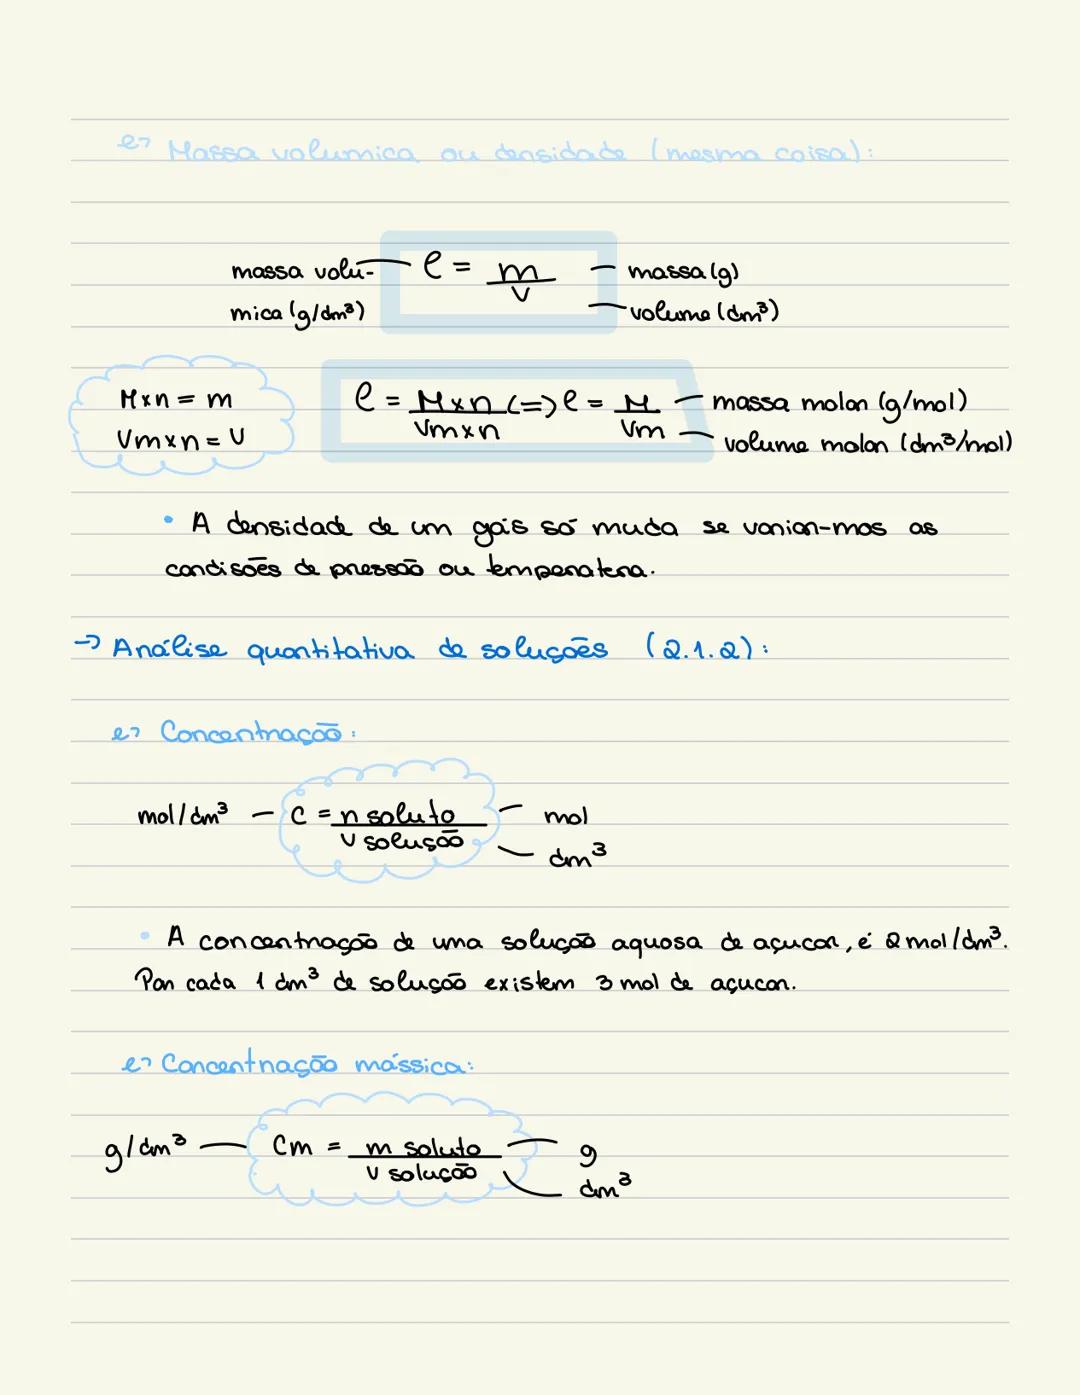 Massa volumica ou densidade (mesma coisa):
massa volu- ρ = m/v massa (g)
mica (g/dm³) volume (dm³)
M×n = m
Vm×n = V
ρ = M×n/Vm×n (=) ρ = M/Vm massa molar (g/mol)
volume molar (dm³/mol)
• A densidade de um gáis só muda se variar-mos as
condisões de pressão ou temperatera.
→ Análise quantitativa de soluções (2.1.2):
Concentração:
mol/dm³ — C = n soluto/v solusão — mol
— dm³
• A concentração de uma solução aquosa de açucar, é 2 mol/dm³.
Por cada 1 dm³ de solução existem 3 mol de açucar.
Concentração mássica:
g/dm³ — Cm = m soluto/v solução — g
dm³